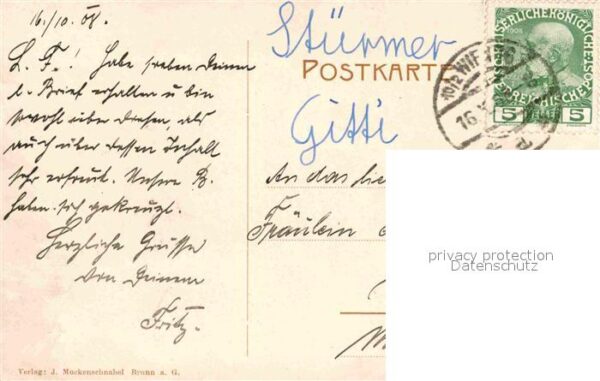 16./10. 08.
L. F.! Habe soeben Deinen
l. Brief erhalten u bin
sowohl über diesen, als
auch über dessen Inhalt
sehr erfreut. Unsere B.
haben sich gekreuzt.
Herzliche Grüsse
von Deinem
Fritz.
Verlag: J. Muckenschnabel Brunn a. G.
Stürmer
POSTKARTE
Gitti
An das
Fräulein
KAISERLICHE KÖNIGLICHE
ÖSTERREICHISCHE POST
1908
5 5
10/2 WIEN
16
privacy protection
Datenschutz